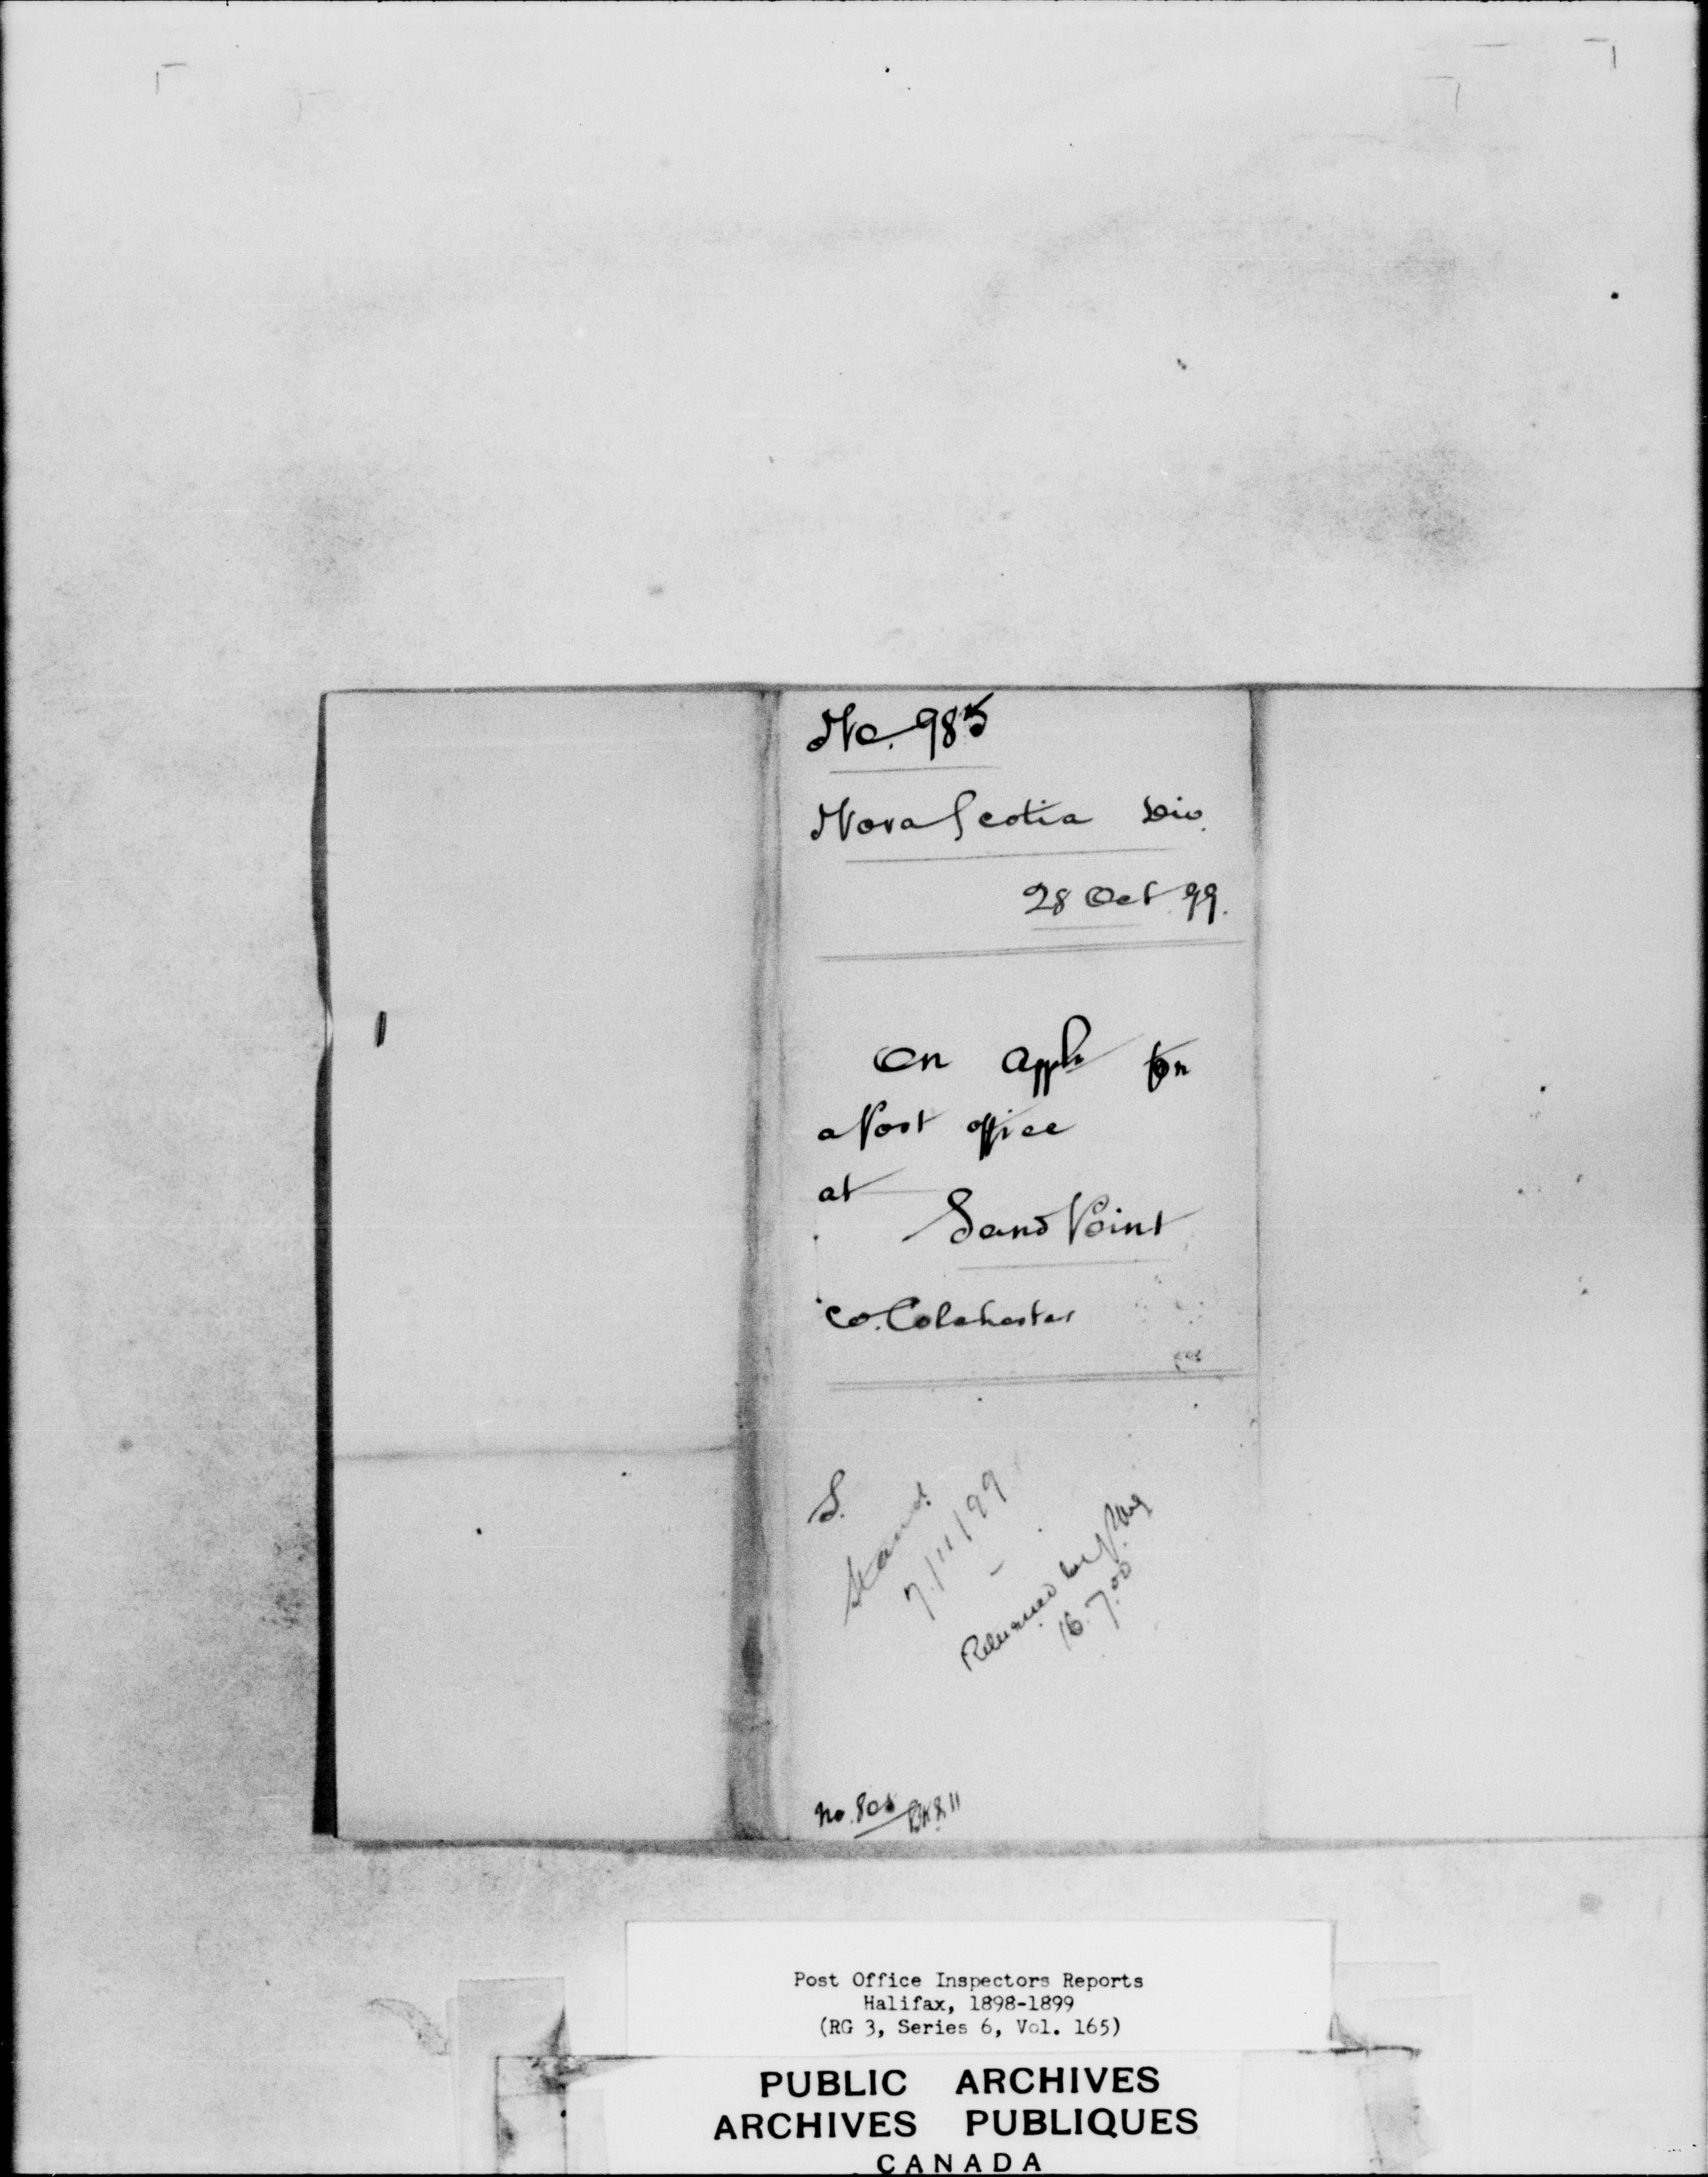 No. 985
Nova Scotia Div.
28 Oct 99.
On appln for
a Post office
at
Sand Point
Co. Colchester
S.
Stand.
7/11/99
Returned by
16.7.00
No. 808
Post Office Inspectors Reports
Halifax, 1898-1899
(RG 3, Series 6, Vol. 165)
PUBLIC ARCHIVES
ARCHIVES PUBLIQUES
CANADA